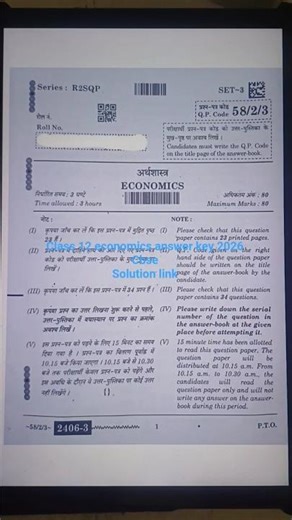 Series : R2SQP
SET-3
प्रश्न-पत्र कोड
Q.P. Code 58/2/3
रोल नं.
Roll No.
परीक्षार्थी प्रश्न-पत्र कोड को उत्तर-पुस्तिका के
मुख-पृष्ठ पर अवश्य लिखें।
Candidates must write the Q.P. Code
on the title page of the answer-book.
अर्थशास्त्र
ECONOMICS
निर्धारित समय : 3 घण्टे
अधिकतम अंक : 80
Time allowed : 3 hours
Maximum Marks : 80
नोट :
(I) कृपया जाँच कर लें कि इस प्रश्न-पत्र में मुद्रित पृष्ठ
23 हैं।
कोड को परीक्षार्थी उत्तर-पुस्तिका के
लिखें।
(III) कृपया जाँच कर लें कि इस प्रश्न-पत्र में 34 प्रश्न हैं।
(IV) कृपया प्रश्न का उत्तर लिखना शुरू करने से पहले,
उत्तर-पुस्तिका में यथास्थान पर प्रश्न का क्रमांक
अवश्य लिखें।
(V) इस प्रश्न-पत्र को पढ़ने के लिए 15 मिनट का समय
दिया गया है। प्रश्न-पत्र का वितरण पूर्वाह्न में
10.15 बजे किया जाएगा। 10.15 बजे से 10.30
बजे तक परीक्षार्थी केवल प्रश्न-पत्र को पढ़ेंगे और
इस अवधि के दौरान वे उत्तर-पुस्तिका पर कोई उत्तर
नहीं लिखेंगे।
NOTE :
(I) Please check that this question
paper contains 23 printed pages.
(II) Q.P. Code given on the right
hand side of the question paper
should be written on the title
page of the answer-book by the
candidate.
(III) Please check that this question
paper contains 34 questions.
(IV) Please write down the serial
number of the question in
the answer-book at the given
place before attempting it.
(V) 15 minute time has been allotted
to read this question paper. The
question paper will be
distributed at 10.15 a.m. From
10.15 a.m. to 10.30 a.m., the
candidates will read the
question paper only and will not
write any answer on the answer-
book during this period.
Class 12 economics answer key 2026
Cbse
Solution link
~58/2/3~
2406-3
1
P.T.O.